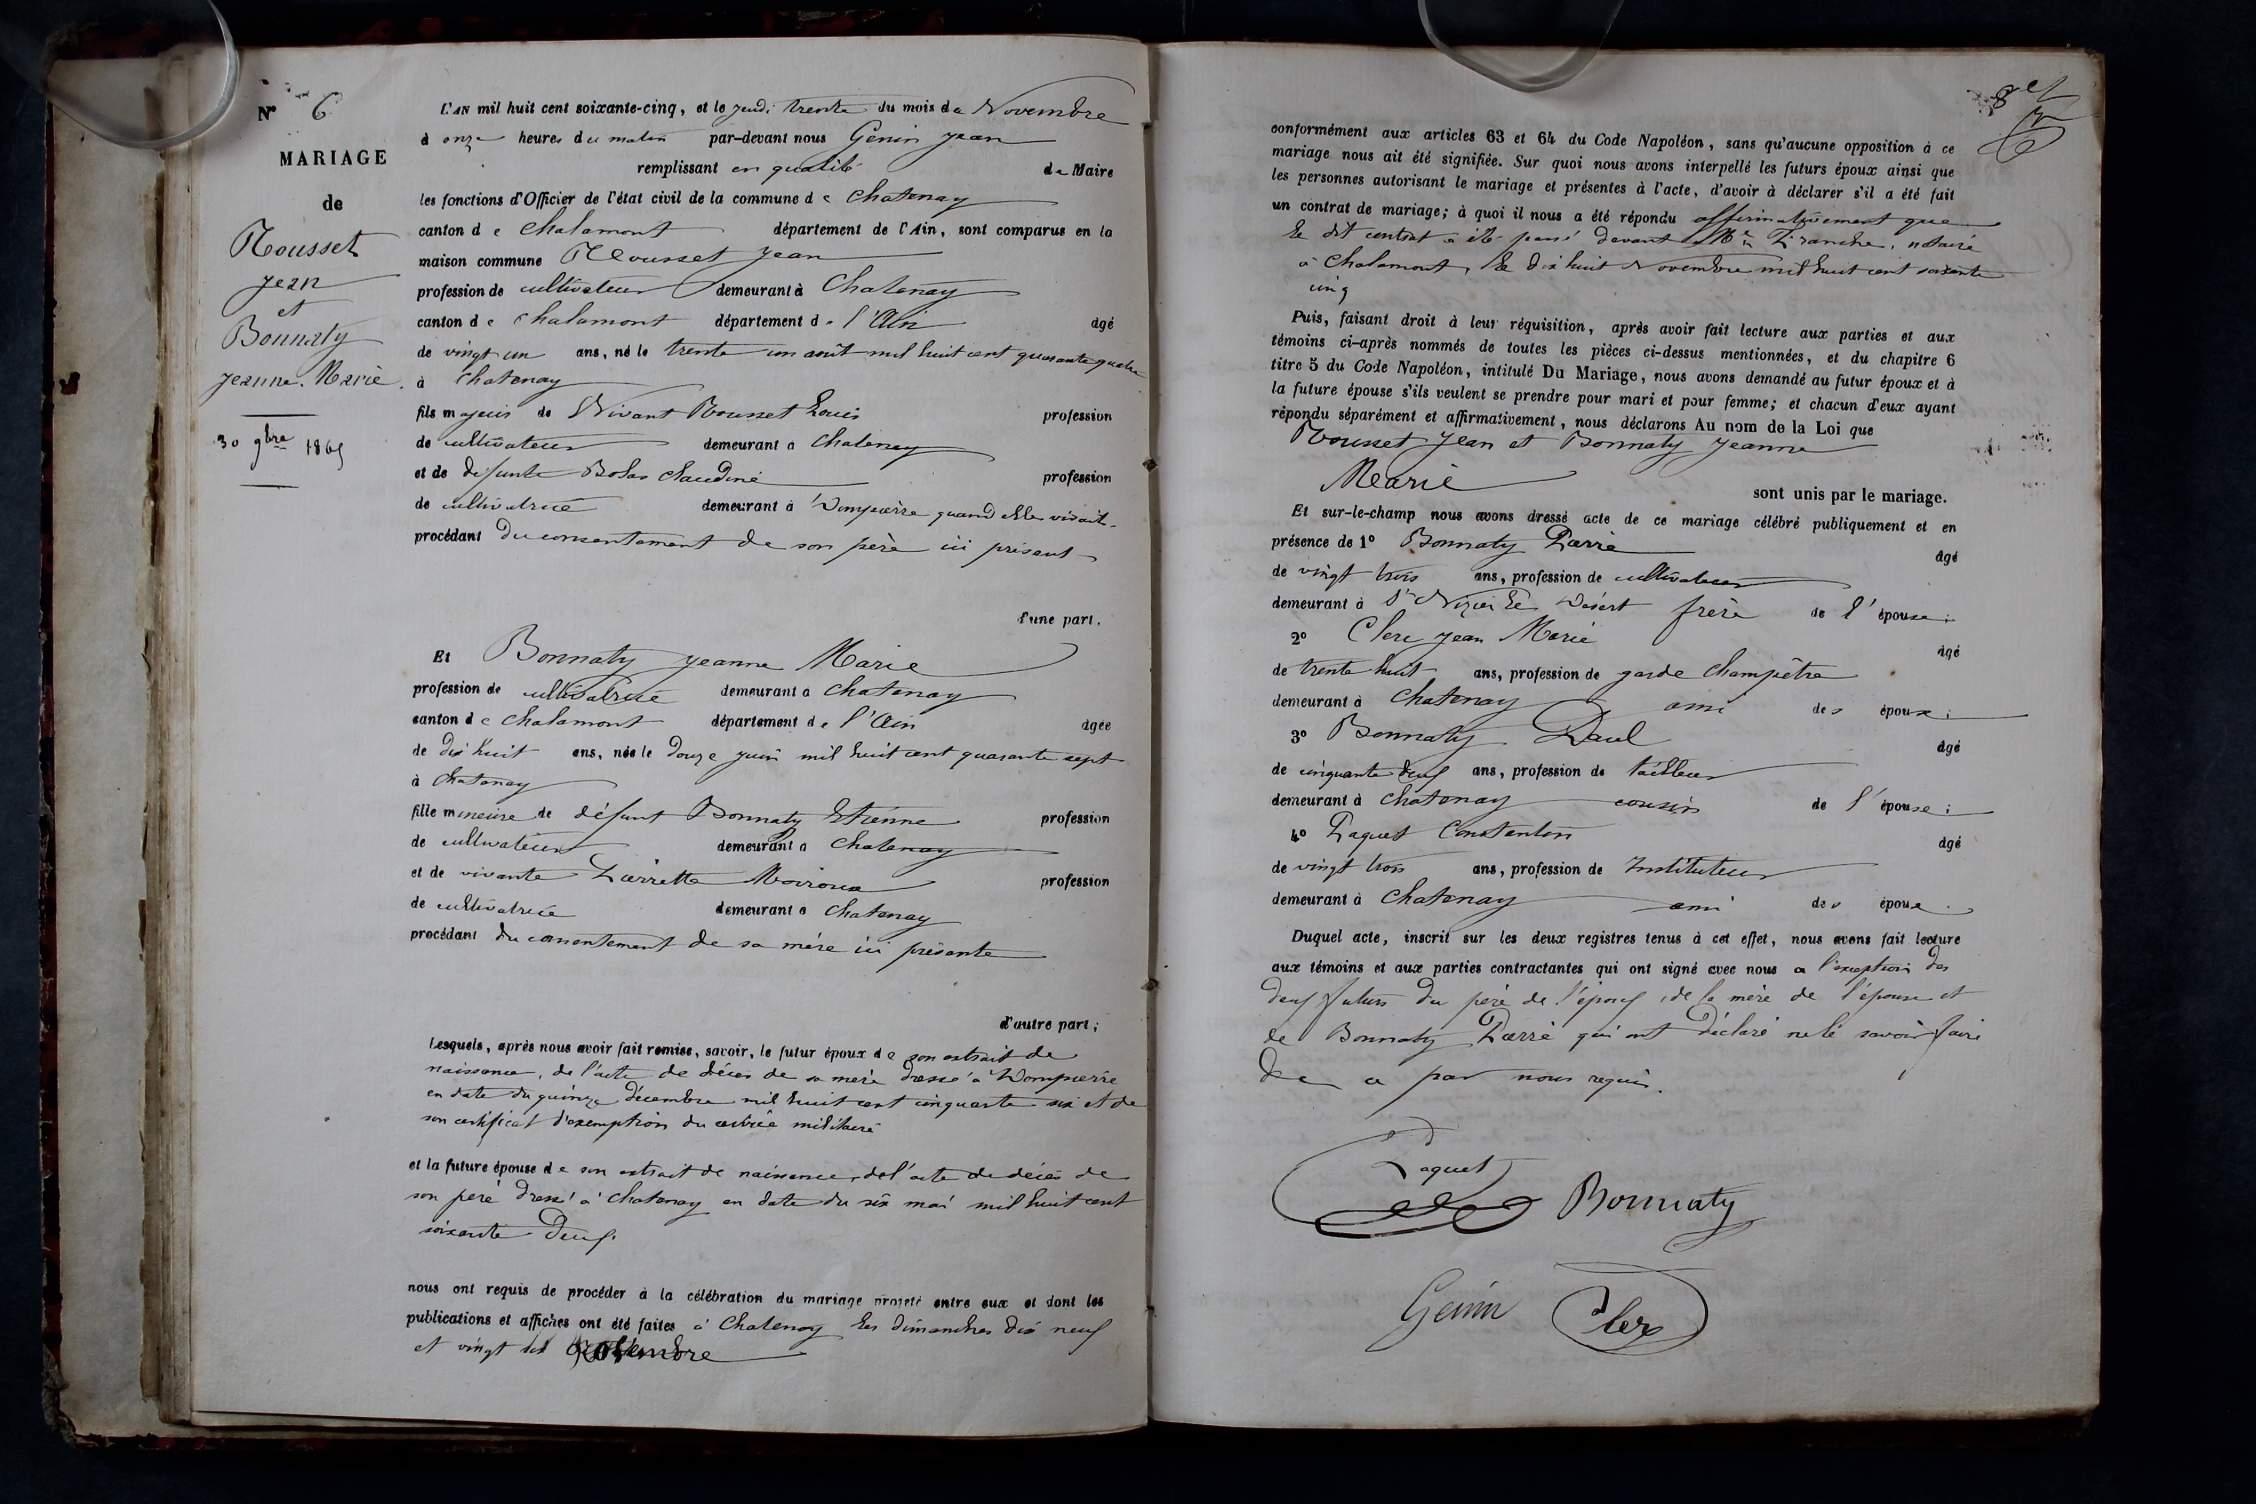 N° 6
MARIAGE
de
Rousset
Jean
et
Bonnaty
Jeanne. Marie
30 9bre 1865
L'AN mil huit cent soixante-cinq, et le jeudi trente du mois de Novembre
à onze heures du matin par-devant nous Genin Jean
remplissant en qualité de Maire
les fonctions d'Officier de l'état civil de la commune de Chatenay
canton de Chalamont département de l'Ain, sont comparus en la
maison commune Rousset Jean
profession de cultivateur demeurant à Chatenay
canton de Chalamont département de l'Ain âgé
de vingt un ans, né le trente un août mil huit cent quarante quatre
à Chatenay
fils majeur de Vivant Rousset Louis profession
de cultivateur demeurant à Chatenay
et de défunte Bolas Claudine profession
de cultivatrice demeurant à Dompierre quand elle vivait.
procédant du consentement de son père ici présent
d'une part.
Et Bonnaty Jeanne Marie
profession de cultivatrice demeurant à Chatenay
canton de Chalamont département de l'Ain âgée
de dix huit ans, née le douze juin mil huit cent quarante sept
à Chatenay
fille mineure de défunt Bonnaty Etienne profession
de cultivateur demeurant à Chatenay
et de vivante Pierrette Moiroux profession
de cultivatrice demeurant à Chatenay
procédant du consentement de sa mère ici présente
d'autre part;
Lesquels, après nous avoir fait remise, savoir, le futur époux de son extrait de
naissance, de l'acte de décès de sa mère dressé à Dompierre
en date du quinze décembre mil huit cent cinquante six et de
son certificat d'exemption du service militaire
et la future épouse de son extrait de naissance, de l'acte de décès de
son père dressé à Chatenay en date du six mai mil huit cent
soixante deux.
nous ont requis de procéder à la célébration du mariage projeté entre eux et dont les
publications et affiches ont été faites à Chatenay les dimanches dix neuf
et vingt six Novembre
8
conformément aux articles 63 et 64 du Code Napoléon, sans qu'aucune opposition à ce
mariage nous ait été signifiée. Sur quoi nous avons interpellé les futurs époux ainsi que
les personnes autorisant le mariage et présentes à l'acte, d'avoir à déclarer s'il a été fait
un contrat de mariage; à quoi il nous a été répondu affirmativement que
le dit contrat a été passé devant Me notaire
à Chalamont, le dix huit Novembre mil huit cent soixante
cinq
Puis, faisant droit à leur réquisition, après avoir fait lecture aux parties et aux
témoins ci-après nommés de toutes les pièces ci-dessus mentionnées, et du chapitre 6
titre 5 du Code Napoléon, intitulé Du Mariage, nous avons demandé au futur époux et à
la future épouse s'ils veulent se prendre pour mari et pour femme; et chacun d'eux ayant
répondu séparément et affirmativement, nous déclarons Au nom de la Loi que
Rousset Jean et Bonnaty Jeanne
Marie
sont unis par le mariage.
Et sur-le-champ nous avons dressé acte de ce mariage célébré publiquement et en
présence de 1° Bonnaty Pierre âgé
de vingt trois ans, profession de cultivateur
demeurant à St Nizier le Désert frère de l'épouse;
2° Clerc Jean Marie âgé
de trente huit ans, profession de garde Champêtre
demeurant à Chatenay ami des époux;
3° Bonnaty Paul âgé
de cinquante deux ans, profession de tailleur
demeurant à Chatenay cousin de l'épouse;
4° Paquet Constantin âgé
de vingt trois ans, profession de Instituteur
demeurant à Chatenay ami des époux.
Duquel acte, inscrit sur les deux registres tenus à cet effet, nous avons fait lecture
aux témoins et aux parties contractantes qui ont signé avec nous à l'exception des
deux futurs du père de l'époux, de la mère de l'épouse et
de Bonnaty Pierre qui ont déclaré ne le savoir faire
de ce par nous requis.
Paquet
Bonnaty
Genin
Clerc